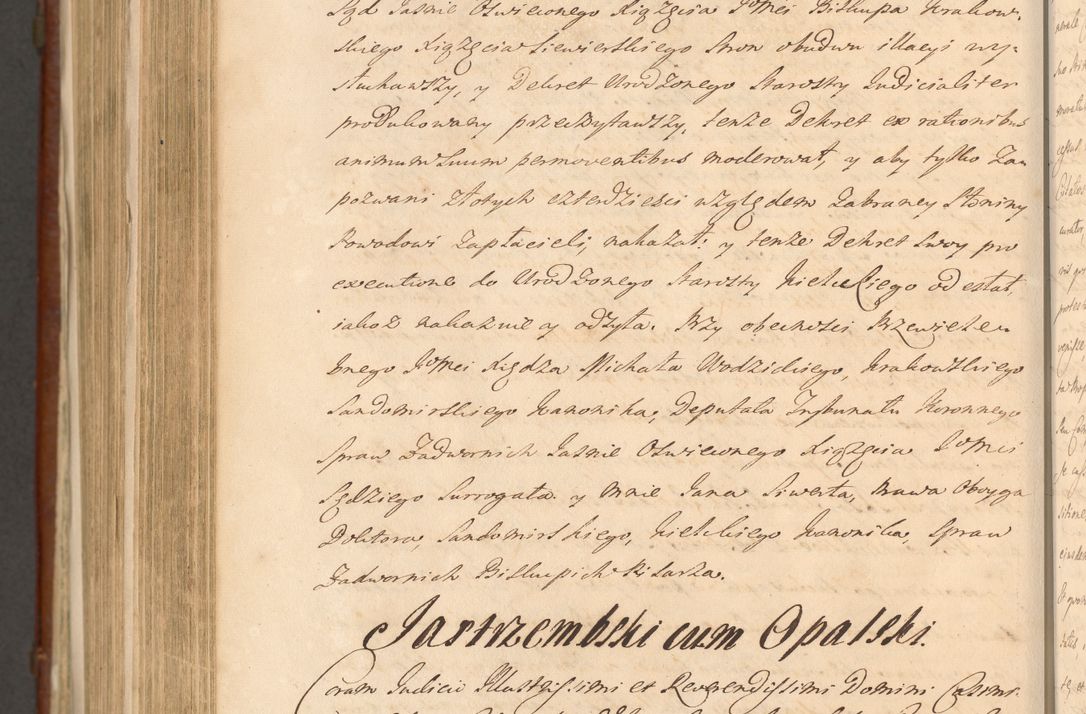 Sąd Jaśnie Oswieconego Xiążęcia Jmci Biskupa Krakow-
skiego Xiążęcia Siewierskiego Stron obudwu illacyi wy-
słuchawszy, y Dekret Urodzonego Starosty Judicialiter
produkowany przeczytawszy, tenże Dekret ex rationibus
animum Suum permoventibus moderował, y aby tylko Za-
pozwani Złotych czterdzieści względem Zabraney Słoniny
Powodowi Zapłacieli, nakazał: y tenże Dekret Swoy pro
executione do Urodzonego Starosty Kieleckiego odesłał,
iakoż nakaznie y odsyła. Przy obecności Przewiele-
bnego Jmci Xiędza Michała Wodzickiego, Krakowskiego
Sandomirskiego Kanonika, Deputata Trybunału Koronnego
Spraw Zadwornich Jaśnie Oswieconego Xiążęcia Jmci
Sędziego Surrogata. y mnie Jana Siwerta, Prawa Oboyga
Doktora, Sandomirskiego, Kieleckiego Kanonika, Spraw
Zadwornich Biskupich Pisarza.
Jastrzembski cum Opalski.
Coram Judicio Illustrissimi et Reverendissimi Domini Casimi-